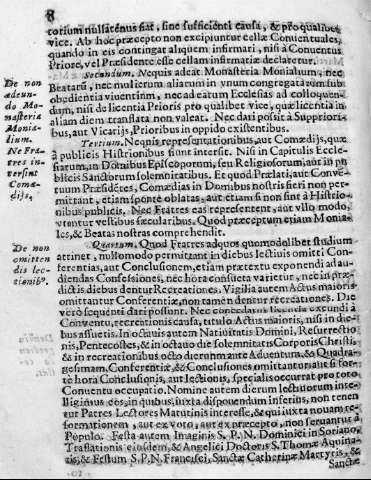 8
torium nullatenus fiat, sine sufficienti causa, & pro qualibet
vice. Ab hoc præcepto non excipiuntur cellæ Conventuales,
quando in eis contingat aliquem infirmari, nisi à Conventus
Priore, vel Præsidente esse cellam infirmariæ declaretur.
Secundum. Nequis adeat Monasteria Monialium, nec
Beatarũ, nec mulierum aliarum in unum congregatarum sub
obedientia viventium, nec ad eatum Ecclesias ad colloquen-
dum, nisi de licentia Prioris pro qualibet vice, quæ licentia in
aliam diem translata non valeat. Nec dari possit à Suppriori-
bus, aut Vicarijs, Prioribus in oppido existentibus.
De non
adeun-
do Mo-
nasteria
Monia-
lium.
Tertium. Nequis repræsentationibus, aut Comœdijs, quæ
à publicis Histrionibus fiunt intersit. Nisi in Capitulis Eccle-
siarum, in Domibus Episcoporum, seu Religiosorum, aut in pu
blicis Sanctorum solemnitatibus. Et quod Prælati, aut Conven-
tuum Præsidẽtes, Comœdias in Domibus nostris fieri non per-
mittant, etiam sponte oblatas, aut etiam si non sint à Histrio-
nibus publicis. Nec Fratres eas repræsentent, aut ullo modo,
utentur vestibus sæcularibus. Quod præceptum etiam Monia-
les, & Beatas nostras comprehendit.
Ne Fra-
tres in-
tersint
Comœ-
dijs.
Quartum. Quod Fratres ad quos quomodolibet studium
attinet, nullomodo permittant in diebus lectivis omitti Con-
ferentias, aut Conclusionem, etiam prætextu exponendi ad au-
diendas Confessiones, nec hora consueta varietur, nec in præ-
dictis diebus dentur Recreationes. Vigilia autem Actus maioris
omittantur Conferentiæ, non tamen dentur recreationes. Die
verò sequenti dari possunt. Nec concedatur licentia exeundi à
Conventu, recreationis causa, titulo Actus maioris, nisi in die-
bus assuetis. In octavis autem Nativitatis Domini, Resurrectio
nis, Pentecostes, & in octavo die solemnitatis Corporis Christi,
& in recreationibus octo dierum ante Adventum, & Quadra-
gesimam, Conferentiæ, & Conclusiones omittantur, aut si for-
te hora Conclusionis, aut lectionis, specialis occurrat pro toto
Conventu occupatio. Nomine autem dierum lectivorum inte-
lligimus eos, in quibus, iuxta disponendum inferius, non tenen
tur Patres Lectores Matutinis interesse, & qui iuxta nouam re-
formationem, aut ex voto, aut ex præcepto, non seruantur à
Populo. Festa autem Imaginis S. P. N. Dominici in Soriano,
Traslationis eiusdem, & Angelici Doctoris S. Thomæ Aquina-
tis, & Festum S. P. N. Francisci, Sanctæ Catherinæ Martyris, &
Sanctæ
De non
omitten
dis lec-
tionibꝰ.